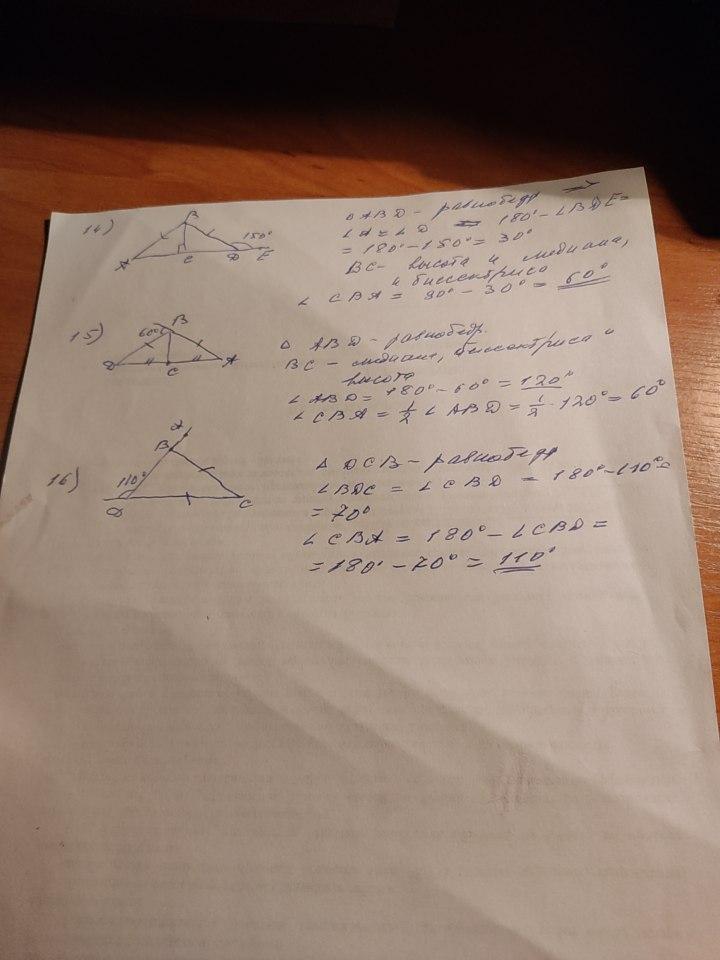 14)
B
150°
A C D E
△ ABD - равнобедр ⇒
∠A = ∠D = 180° - ∠BDE =
= 180° - 150° = 30°
BC - высота и медиана,
и биссектриса
∠ CBA = 90° - 30° = 60°
15)
B
60°
D C A
△ ABD - равнобедр.
BC - медиана, биссектриса и
высота
∠ABD = 180° - 60° = 120°
∠CBA = 1/2 ∠ABD = 1/2 · 120° = 60°
16)
A
B
110°
D C
△ DCB - равнобедр
∠BDC = ∠CBD = 180° - 110° =
= 70°
∠CBA = 180° - ∠CBD =
= 180° - 70° = 110°